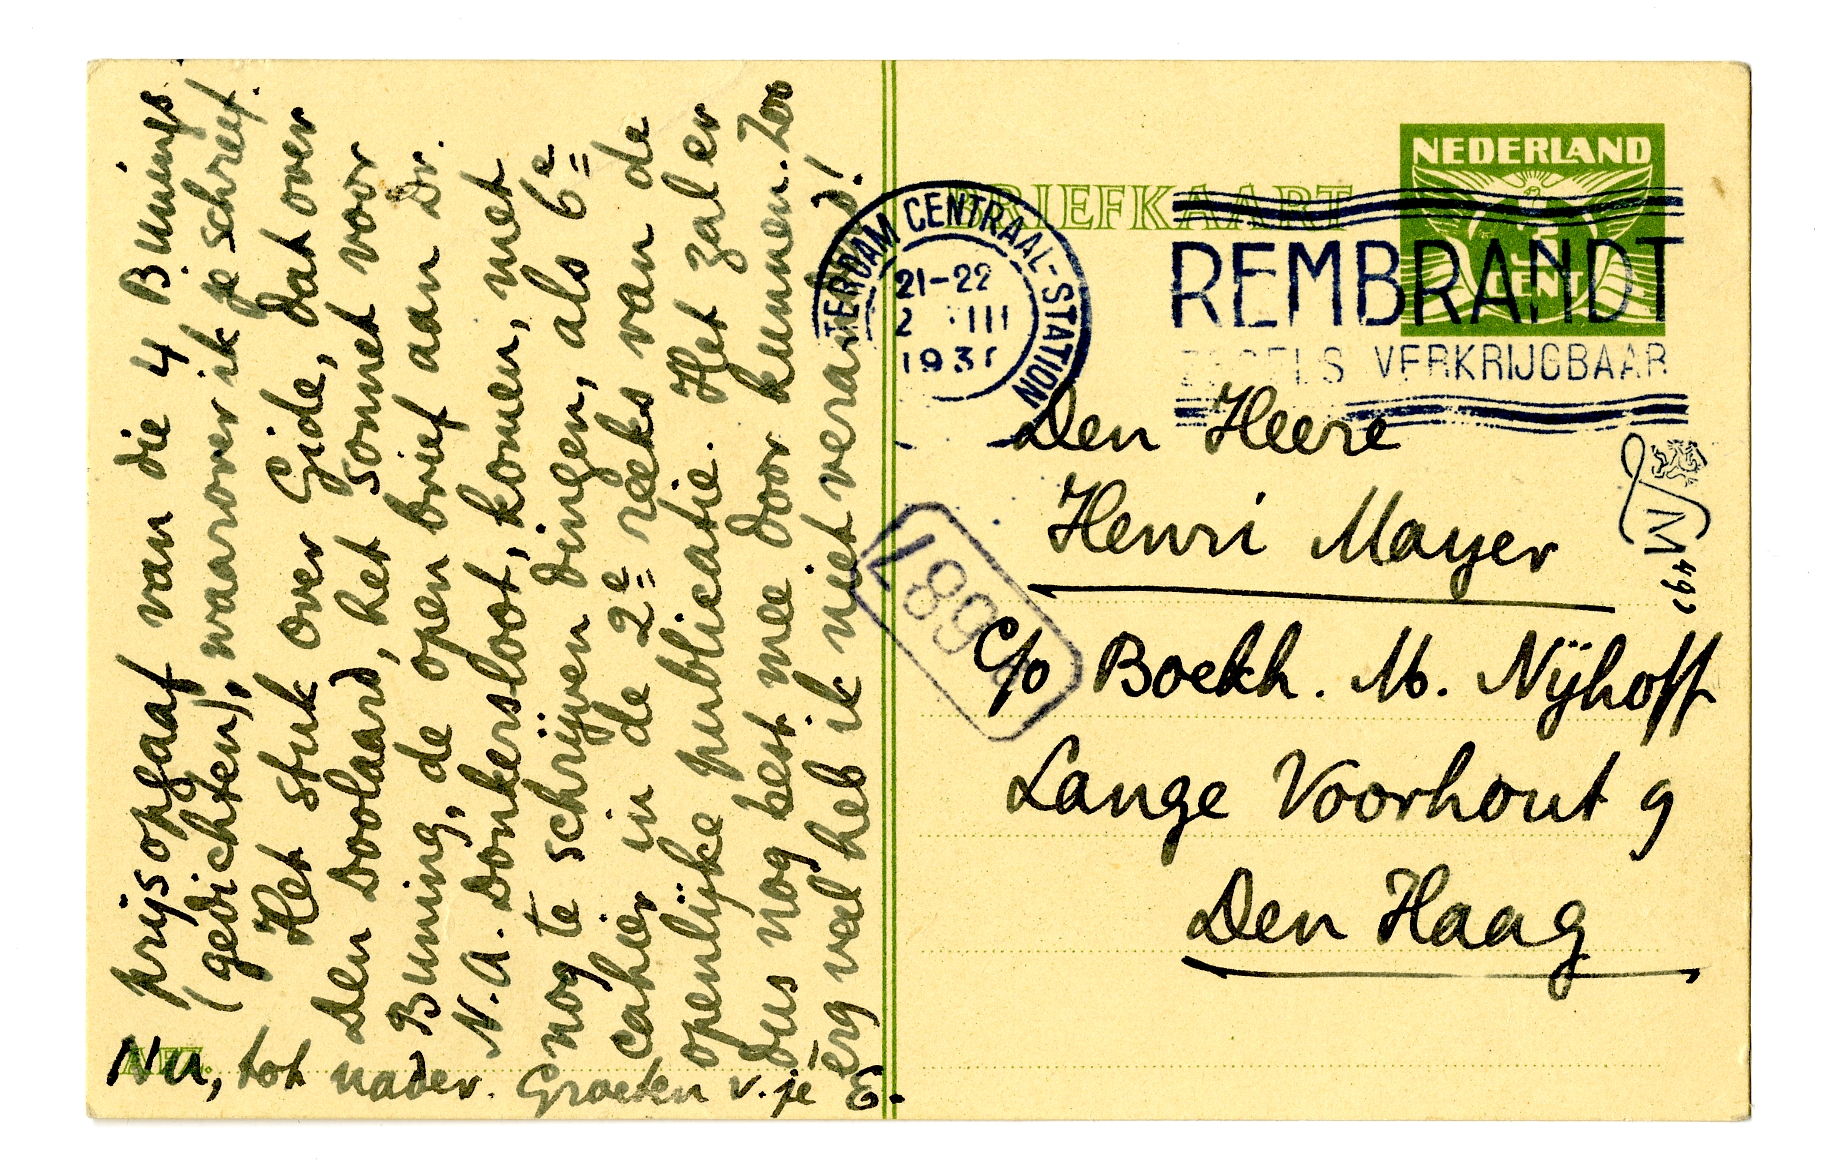 prijsopgaaf van die 4 Bunings
(gedichten), waarover ik je schreef.
Het stuk over Gide, dat over
Den Doolaard, het sonnet voor
Buning, de open brief aan Dr.
N.A. Donkersloot, komen, met
nog te schrijven dingen, als 6e
cahier in de 2e reeks van de
openlijke publicatie. Het zal er
dus nog best mee door kunnen. Zoo
erg veel heb ik niet veranderd!
Nu, tot nader. Groeten v. je E.
BRIEFKAART
NEDERLAND
CENT
AMSTERDAM CENTRAAL-STATION
21-22
III
REMBRANDT
ZEGELS VERKRIJGBAAR
Den Heere
Henri Mayer
c/o Boekh. M. Nijhoff
Lange Voorhout 9
Den Haag
M 492
AFZ.